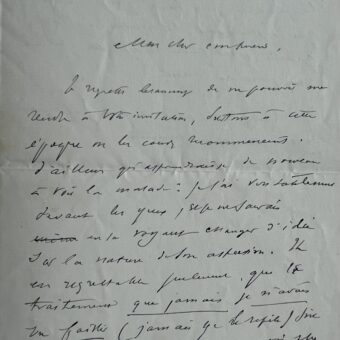 Mon cher confrère,
Je regrette beaucoup de ne pouvoir me
rendre à votre invitation, surtout à cette
époque où les cours recommencent.
D'ailleurs qu'apprendrais-je de nouveau
à voir la malade : je l'ai
devant les yeux, et je ne saurais
en la voyant changer d'idée
sur la nature de son affection. Il
est regrettable que le
traitement que jamais je n'avais
vu faillir (jamais je le répète)